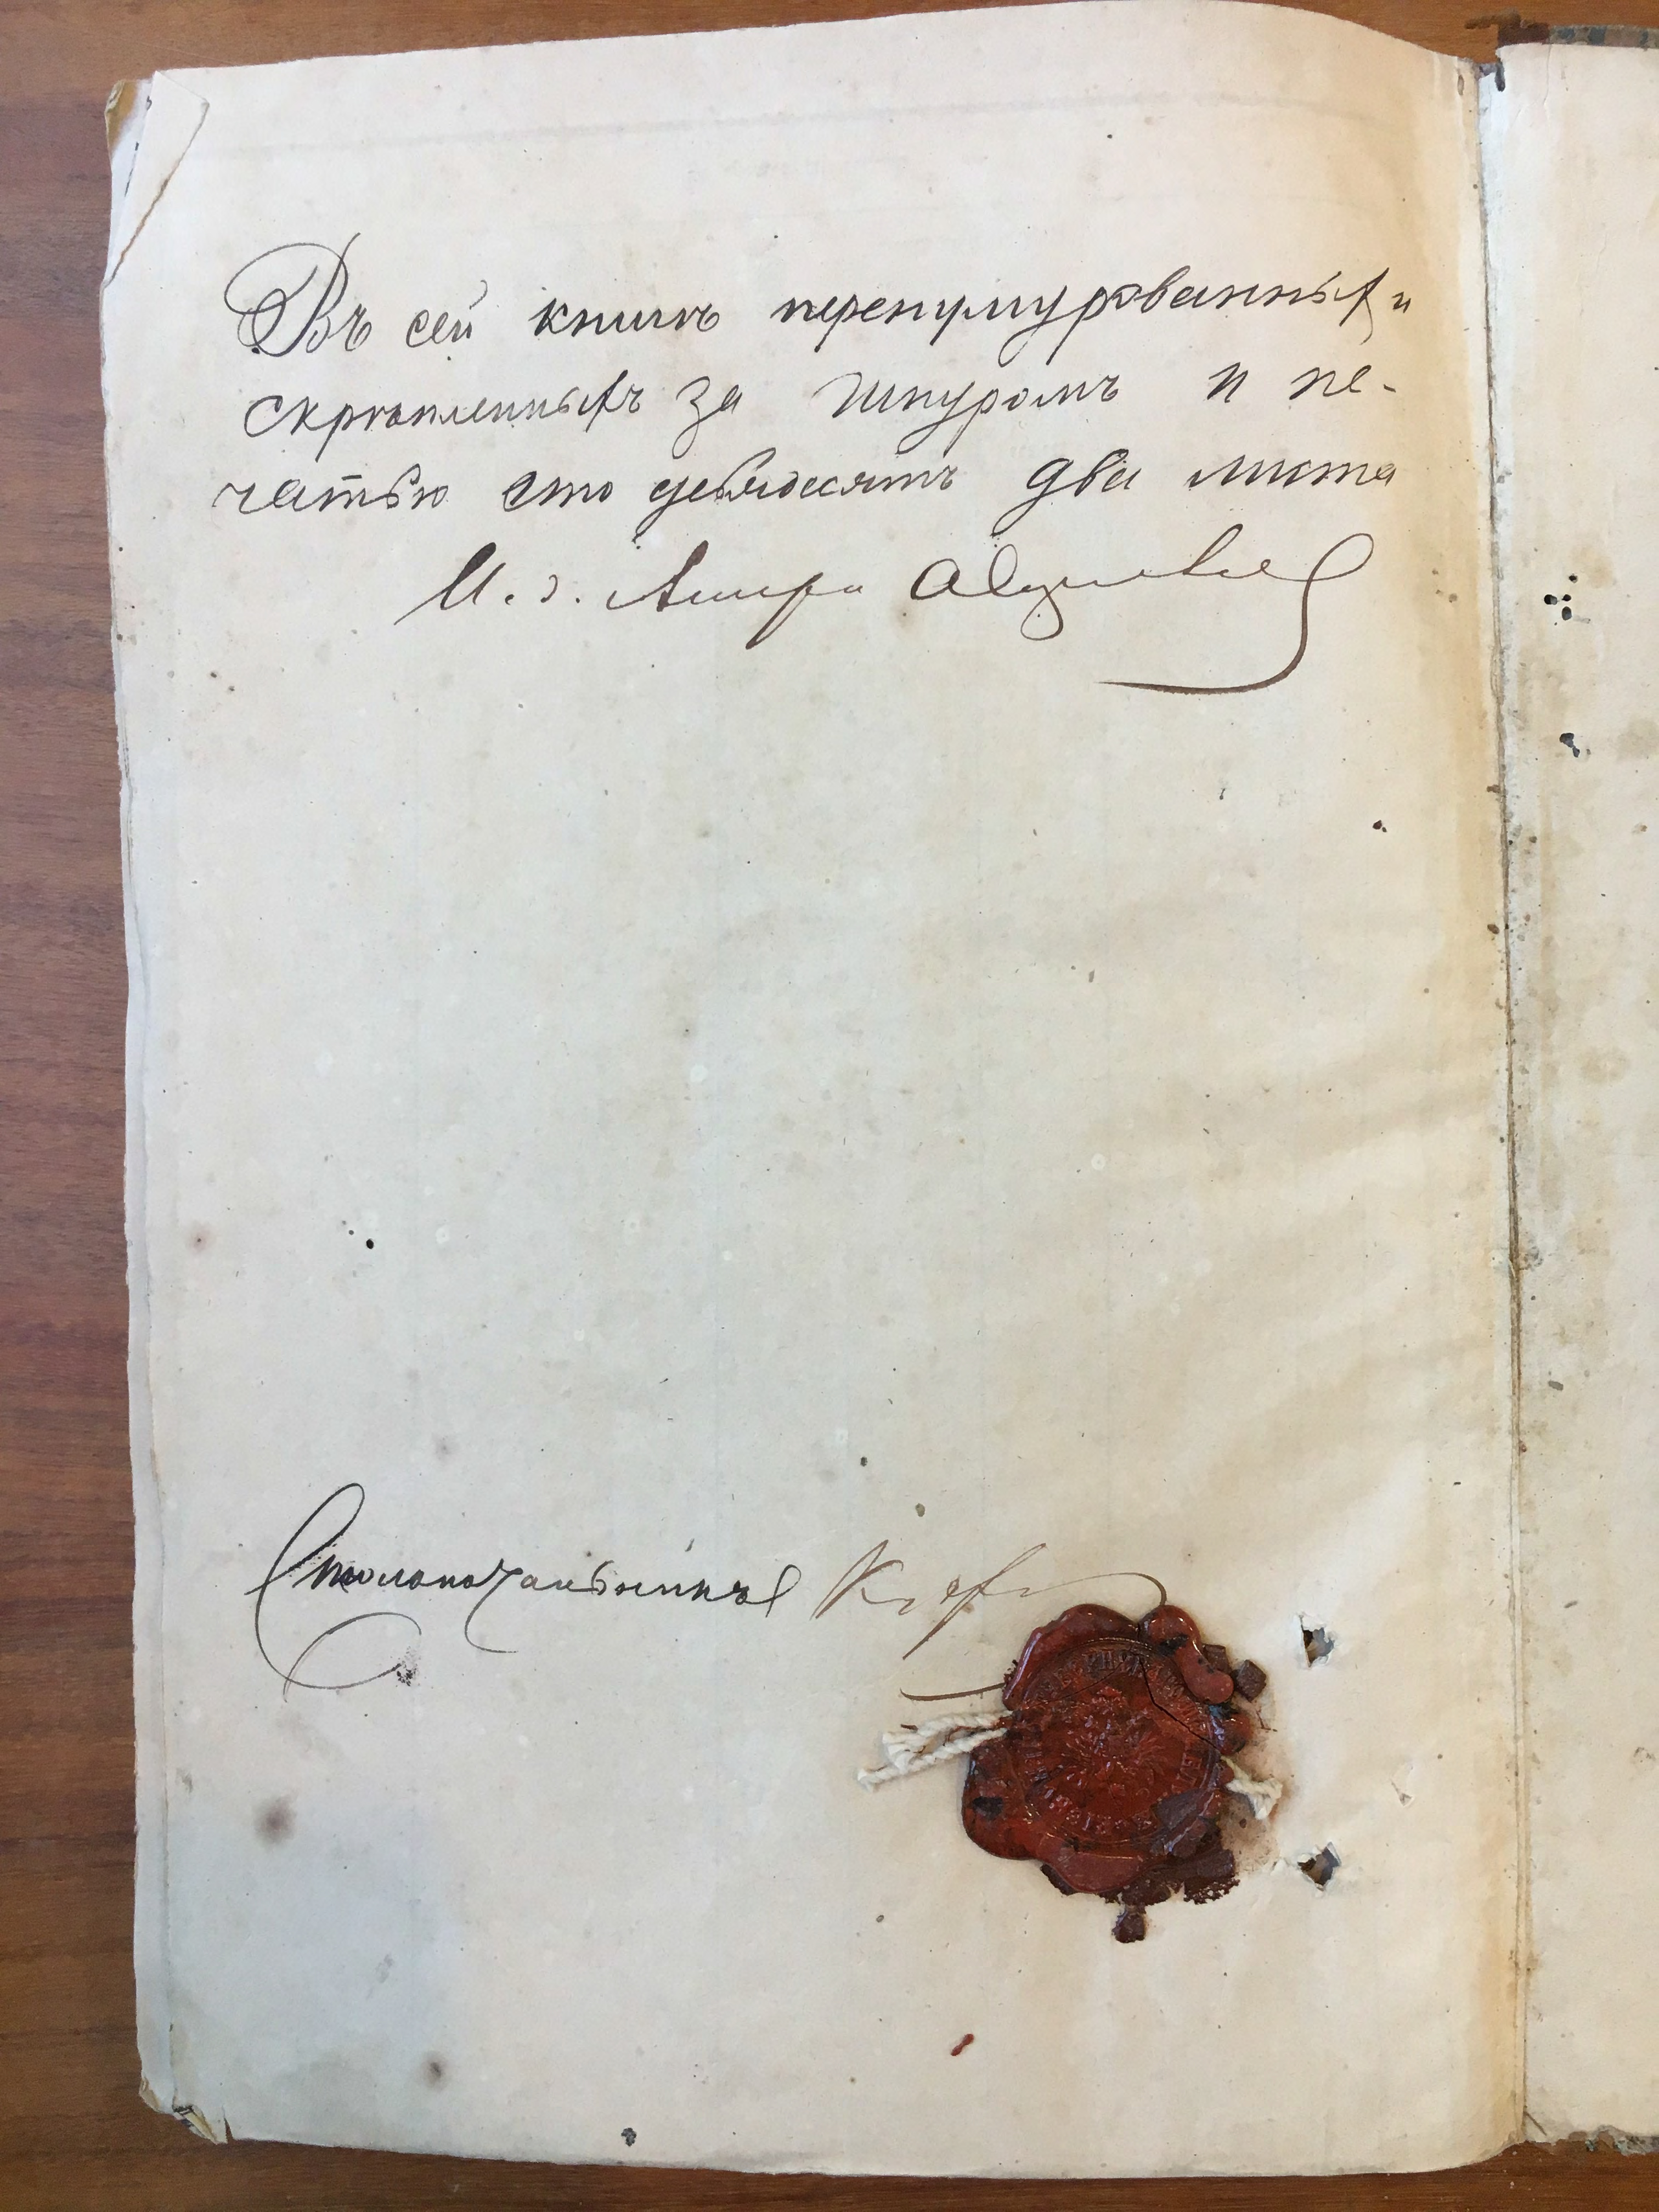 Въ сей книгѣ перенумурованныхъ и
скрѣпленныхъ за шнуромъ и пе-
чатью сто девяносто два листа
И. д.
Столоначальникъ